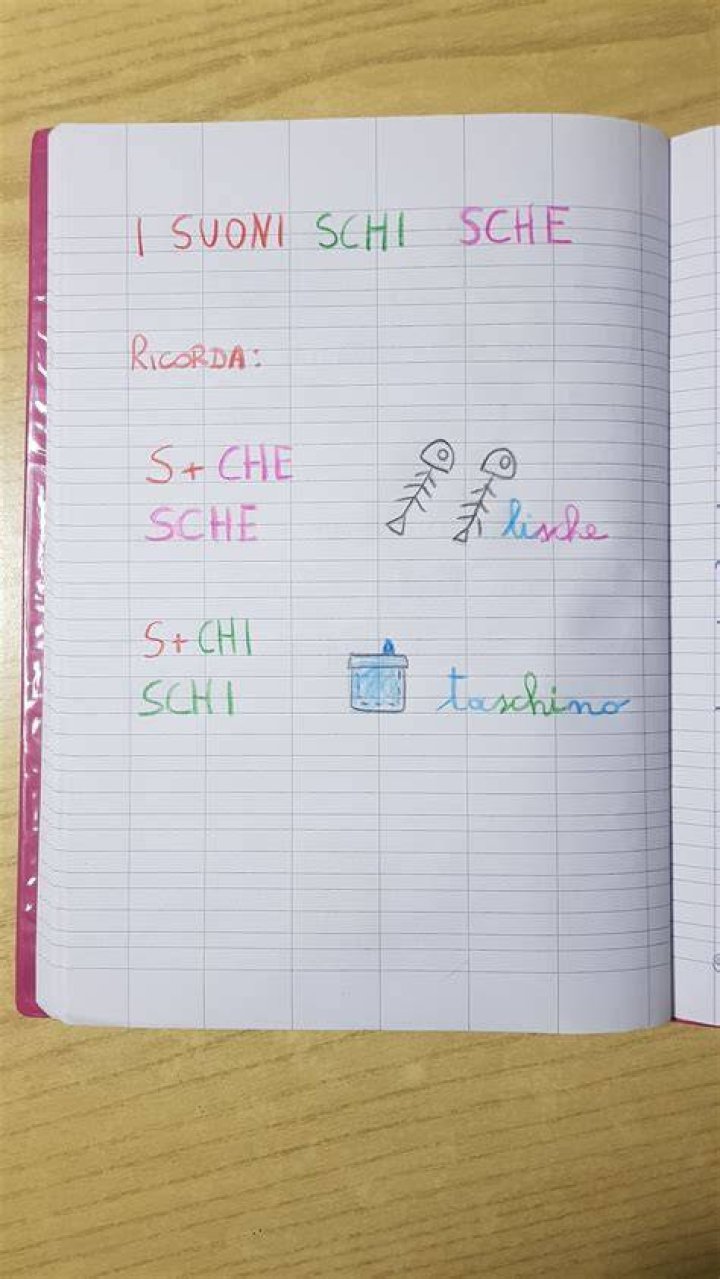 I SUONI SCHI SCHE
RICORDA:
S+ CHE
SCHE
lische
S+ CHI
SCHI
taschino